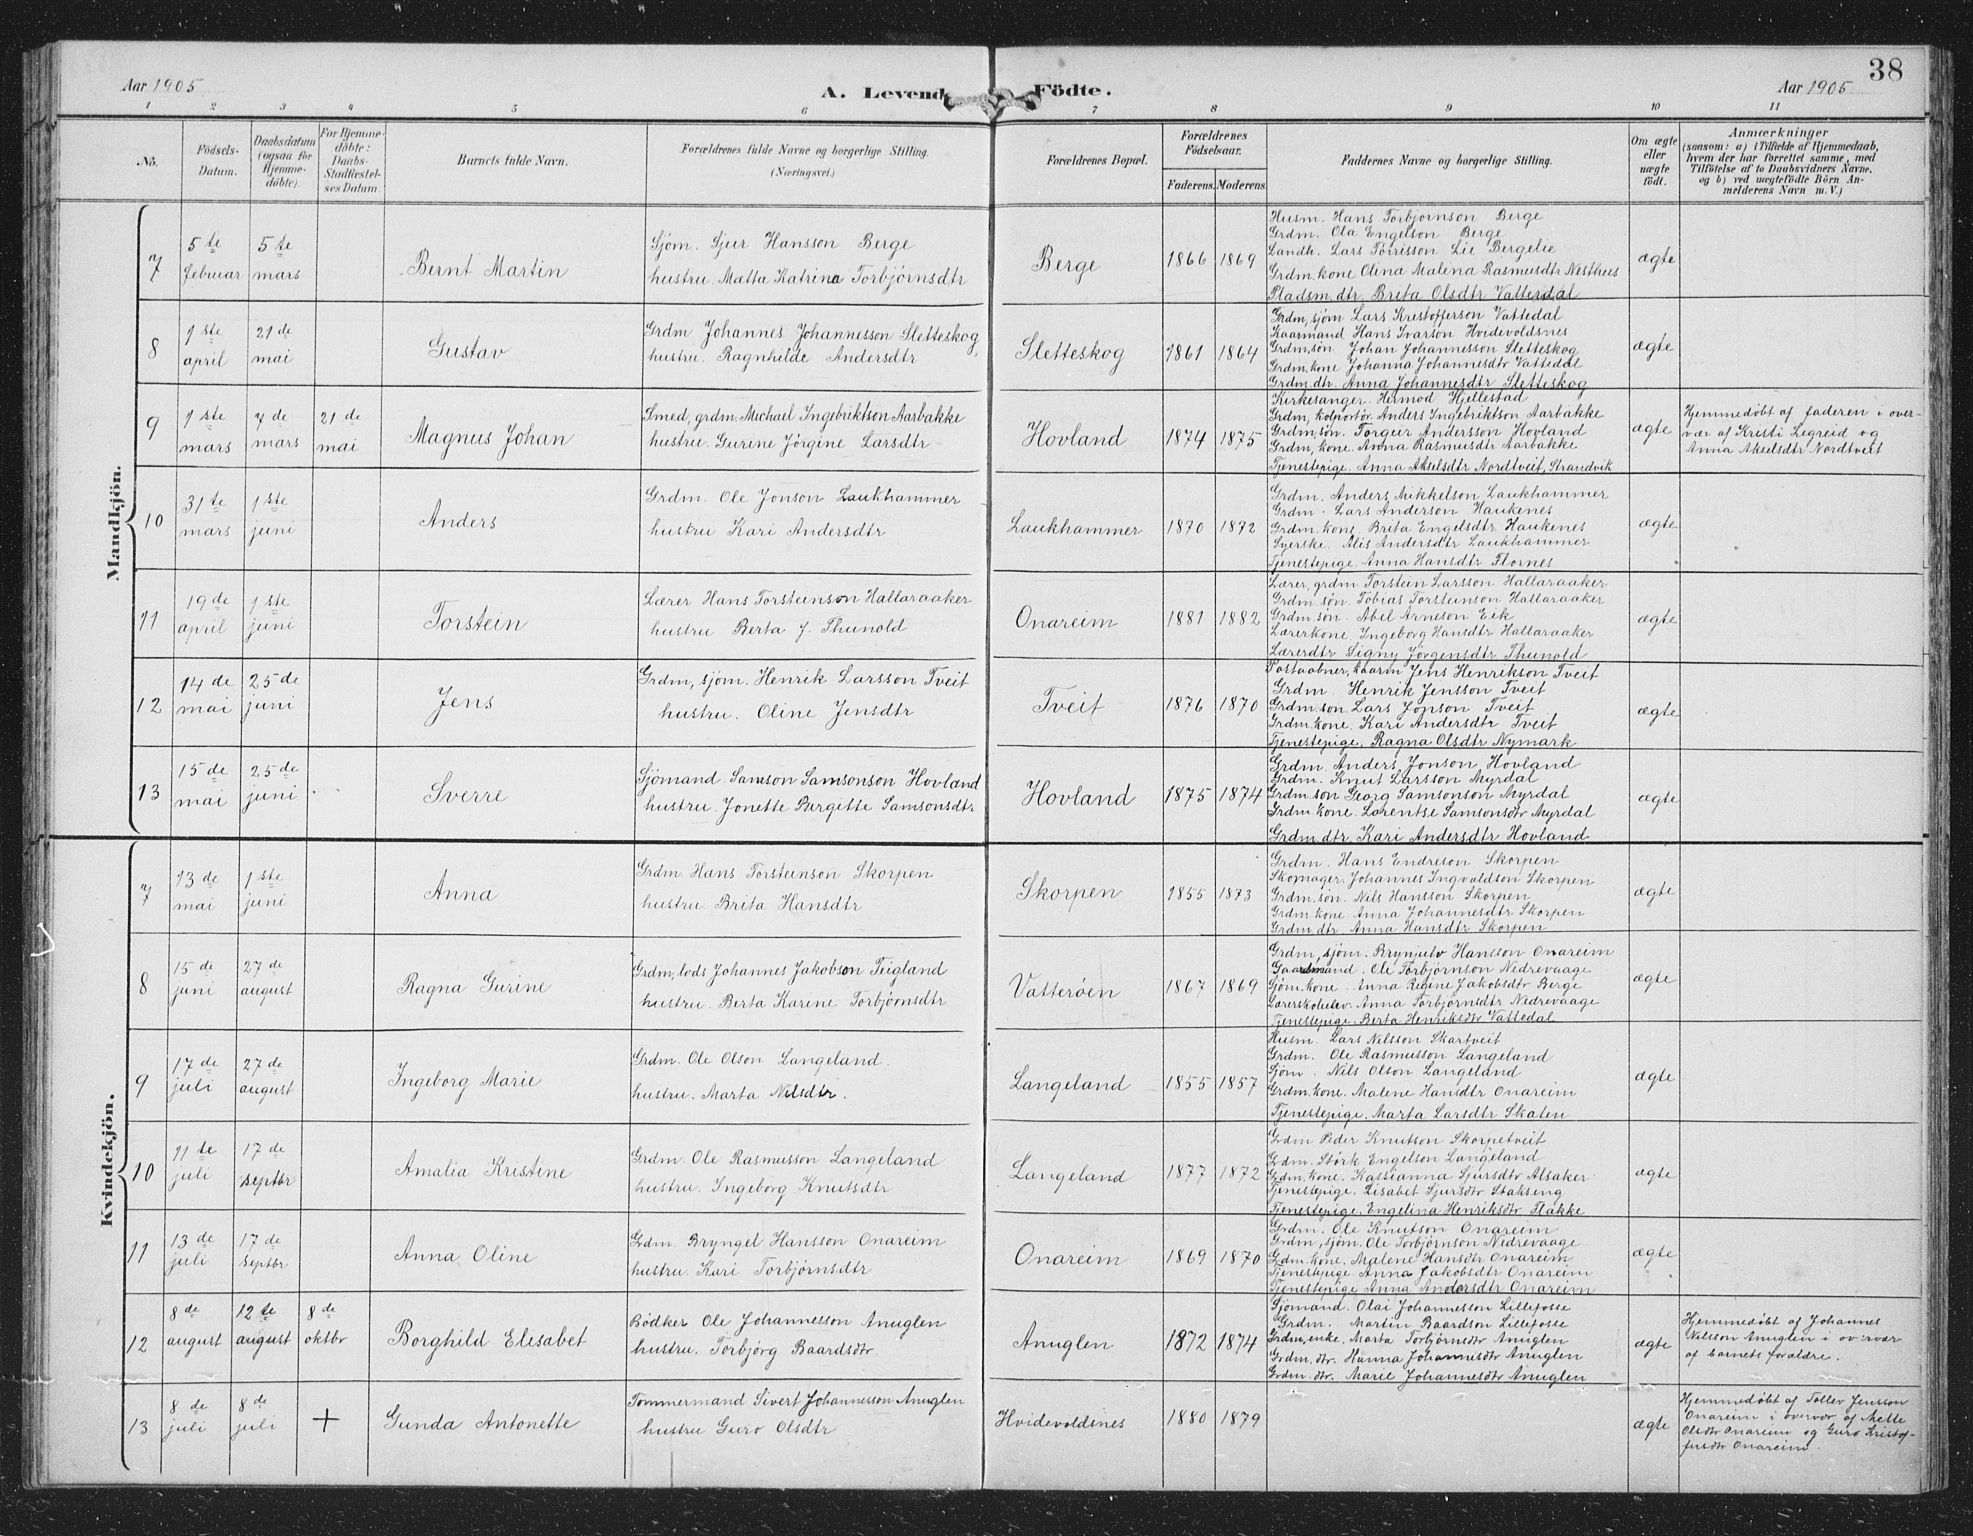 38
Aar 1905
A. Levende Födte.
Aar 1905
1 2 3 4 5 6 7 8 9 10 11
No.
Födsels-
Datum.
Daabsdatum
(ogsaa for
Hjemme-
döbte).
For Hjemme-
döbte:
Daabs-
Stadfæstel-
ses Datum.
Barnets fulde Navn.
Forældrenes fulde Navne og borgerlige Stilling.
(Næringsvei.)
Forældrenes Bopæl.
Forældrenes
Födselsaar.
Faderens. Moderens.
Faddernes Navne og borgerlige Stilling.
Om ægte
eller
uægte
födt.
Anmærkninger
(saasom: a) i Tilfælde af Hjemmedaab,
hvem der har forrettet samme, med
Tilföielse af to Daabsvidners Navne.
og b) ved uægtefödte Börn An-
melderens Navn m. V.)
Mandkjön.
7
5te
februar
5te
mars
Bernt Martin
Sjöm. Sjur Hansson Berge
hustru Matta Katrina Torbjörnsdtr
Berge
1866 1869
Husm. Hans Torbjörnson Berge
Grdm. Ola Engelson Berge
Landh. Lars Törrisson Lie Bergelie
Grdm. kone Olina Malena Rasmusdtr Nesthus
Pladsm. dtr. Brita Olsdtr Vatterdal
ægte
8
1ste
april
21de
mai
Gustav
Grdm Johannes Johannesson Sletteskog,
hustru. Ragnhilde Andersdtr
Sletteskog
1861 1864
Grdm, sjöm Lars Kristofferson Vattedal
Kaarmand Hans Ivarson Hvidevoldsnes
Grdm.sön Johan Johannesson Sletteskog
Grdm. kone Johanna Johannesdtr Vattedal
Grdm. dtr. Anna Johannesdtr Sletteskog
ægte
9
1ste
mars
7de
mars
21de
mai
Magnus Johan
Smed, grdm. Michael Ingebriktson Aarbakke
hustru. Gurine Jörgine Larsdtr
Hovland
1874 1875
Kirkesanger. Hermod Hjellestad
Grdm, kolportör. Anders Ingebriktson Aarbakke
Grdm. sön. Torgeir Andersson Hovland
Grdm, kone. Anna Rasmusdtr Aarbakke
Tjenestepige. Anna Akselsdtr Nordtveit, Strandvik
ægte
Hjemmedöbt af faderen i over-
vær af Kristi Legreid og
Anna Akselsdtr Nordtveit
10
31te
mars
1ste
juni
Anders
Grdm. Ole Jonson Laukhammer
hustru Kari Andersdtr
Laukhammer
1870 1872
Grdm. Anders Mikkelson Laukhammer
Grdm. Lars Anderson Haukenes
Grdm. kone. Brita Engelsdtr Haukenes
Syerske. Alis Andersdtr Laukhammer
Tjenestepige. Anna Hansdtr Flornes
ægte
11
19de
april
1ste
juni
Torstein
Lærer Hans Torsteinson Hallaraaker
hustru Berta J. Thunold
Onareim
1881 1882
Lærer, grdm Torstein Larsson Hallaraaker
Grdm. sön. Tobias Torsteinson Hallaraaker
Grdm. sön. Abel Arneson Eik
Lærerkone Ingeborg Hansdtr Hallaraaker
Lærerdtr Signy Jörgensdtr Thunold
ægte
12
14de
mai
25de
juni
Jens
Grdm, sjöm. Henrik Larsson Tveit
hustru. Oline Jensdtr
Tveit
1876 1870
Postaabner, kaarm Jens Henrikson Tveit
Grdm. Henrik Jensson Tveit
Grdm. sön Lars Jonson Tveit
Grdm. kone. Kari Andersdtr Tveit
Tjenestepige. Ragna Olsdtr Nymark
ægte
13
15de
mai
25de
juni
Sverre
Sjömand Samson Samsonson Hovland
hustru. Jonette Birgitte Samsonsdtr
Hovland
1875 1874
Grdm. Anders Jonson Hovland
Grdm. Knut Larsson Myrdal
Grdm. sön Georg Samsonson Myrdal
Grdm. kone. Lorentse Samsonsdtr Myrdal
Grdm. dtr. Kari Andersdtr Hovland
ægte
Kvindekjön.
7
13de
mai
1ste
juni
Anna
Grdm. Hans Torsteinson Skorpen
hustru Brita Hansdtr
Skorpen
1855 1873
Grdm. Hans Endreson Skorpen
Skomager. Johannes Ingvaldson Skorpen
Grdm. sön. Nils Hansson Skorpen
Grdm. kone Anna Johannesdtr Skorpen
Grdm. dtr Anna Hansdtr Skorpen
ægte
8
15de
juni
27de
august
Ragna Gurine
Grdm, lods Johannes Jakobson Teigland
hustru. Berta Karine Torbjörnsdtr
Vatteröen
1867 1869
Grdm, sjöm. Brynjulv Hansson Onareim
Gaardmand. Ole Torbjörnson Nedrevaage
Sjöm. kone Anna Regine Jakobsdtr Berge
Lærerskoleelev. Anna Torbjörnsdtr Nedrevaage
Tjenestepige. Berta Henriksdtr Vattedal
ægte
9
17de
juli
27de
august
Ingeborg Marie
Grdm. Ole Olson Langeland.
hustru. Marta Nilsdtr.
Langeland
1855 1857
Husm. Lars Nilsson Skartveit
Grdm. Ole Rasmusson Langeland
Sjöm. Nils Olson Langeland
Grdm. kone. Malene Hansdtr Onareim
Tjenestepige. Marta Larsdtr Skaten
ægte
10
11te
juli
17de
septbr
Amalia Kristine
Grdm. Ole Rasmusson Langeland
hustru. Ingeborg Knutsdtr
Langeland
1877 1872
Grdm Peder Knutson Skorpetveit
Grdm. Störk Engelson Langeland
Grdm. kone. Kastianna Sjursdtr Alsaker
Tjenestepige. Lisabet Sjursdtr Stakseng
Tjenestepige. Engelina Henriksdtr Flakke
ægte
11
13de
juli
17de
septbr
Anna Oline
Grdm. Bryngel Hansson Onareim
hustru. Kari Torbjörnsdtr
Onareim
1869 1870
Grdm. Ole Knutson Onareim
Grdm, sjöm. Ole Torbjörnson Nedrevaage
Grdm. kone. Malene Hansdtr Onareim
Tjenestepige Anna Jakobsdtr Onareim
Tjenestepige Anna Andersdtr Onareim
ægte
12
8de
august
12te
august
8de
oktbr
Borghild Elisabet
Bödker Ole Johannesson Anuglen
hustru. Torbjörg Baardsdtr.
Anuglen
1872 1874
Sjömand. Olai Johannesson Lillefosse
Grdm. Martin Baardson Lillefosse
Grdm, enke. Marta Torbjörnsdtr Anuglen
Grdm. dtr. Hanna Johannesdtr Anuglen
Grdm. dtr. Marie Johannesdtr Anuglen
ægte
Hjemmedöbt af Johannes
Nilsson Anuglen i overvær
af barnets forældre.
13
8de
juli
8de
juli
+
Gunda Antonette
Tömmermand Sivert Johannesson Anuglen
hustru Guro Olsdtr
Hvidevoldsnes
1880 1879
ægte
Hjemmedöbt af Tollev Jensson
Onareim i overvær af Mette
Olsdtr Onareim og Guro Kristof-
fersdtr Onareim.